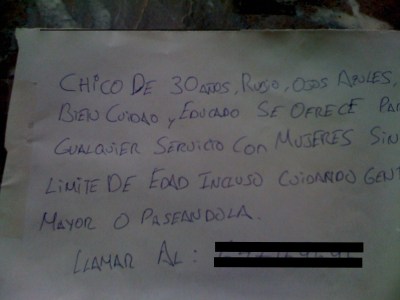 CHICO DE 30 AÑOS, RUSO, OJOS AZULES,
BIEN CUIDAO Y EDUCADO SE OFRECE PA
CUALQUIER SERVICIO CON MUJERES SIN
LIMITE DE EDAD INCLUSO CUIDANDO GEN
MAYOR O PASEANDOLA.
LLAMAR AL :